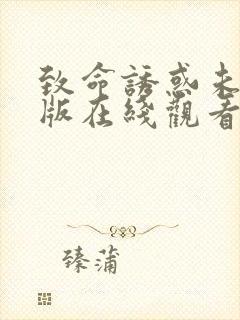 致命誘惑未
版在綫觀看
臻蒲